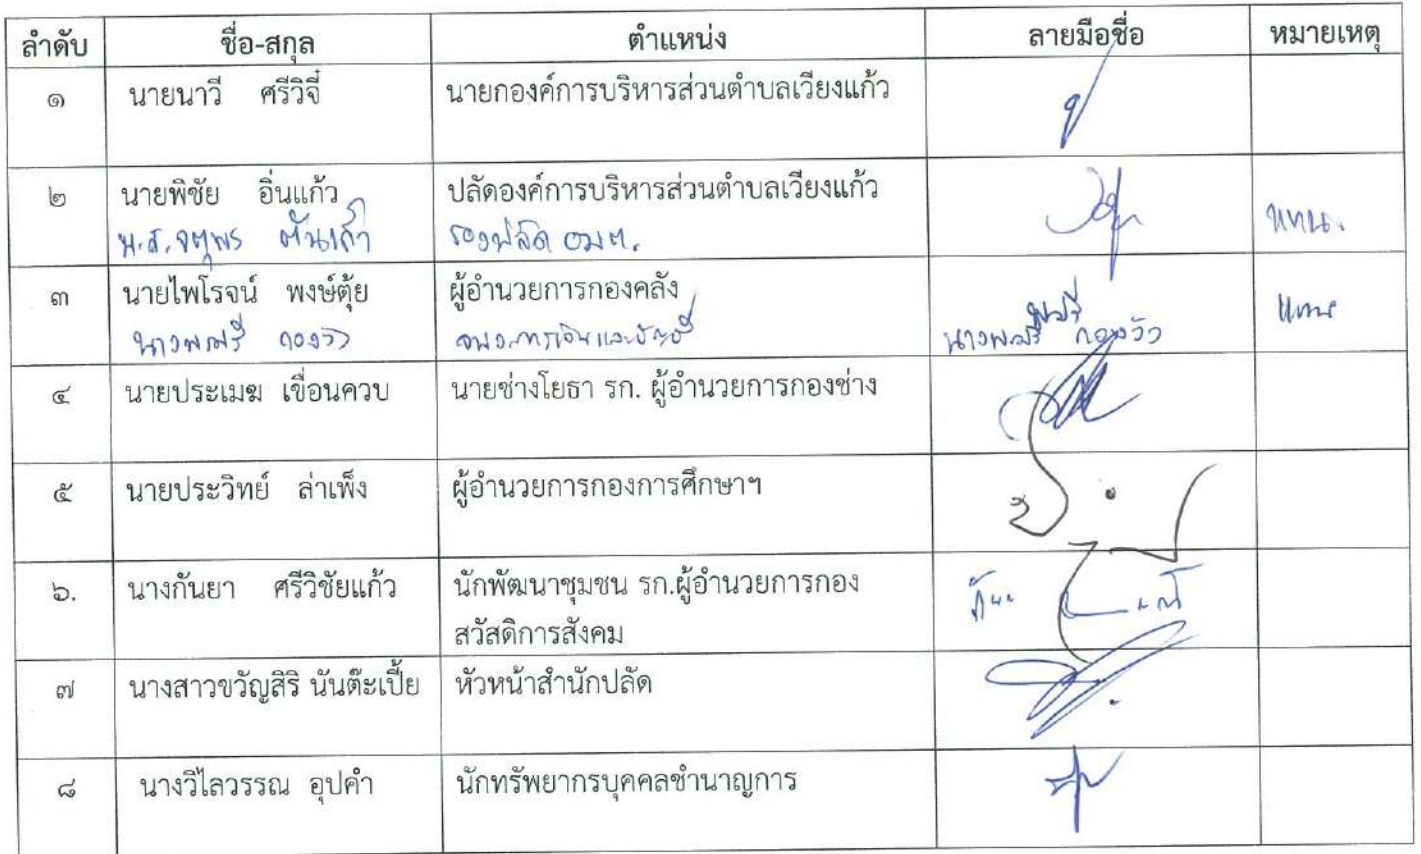 ลำดับ ชื่อ-สกุล ตำแหน่ง ลายมือชื่อ หมายเหตุ
๑ นายนาวี ศรีวิจี๋ นายกองค์การบริหารส่วนตำบลเวียงแก้ว
๒ นายพิชัย อิ่นแก้ว ปลัดองค์การบริหารส่วนตำบลเวียงแก้ว
น.ส. จตุพร รองปลัด อบต. แทน.
๓ นายไพโรจน์ พงษ์ตุ้ย ผู้อำนวยการกองคลัง แทน
๔ นายประเมฆ เขื่อนควบ นายช่างโยธา รก. ผู้อำนวยการกองช่าง
๕ นายประวิทย์ ล่าเพ็ง ผู้อำนวยการกองการศึกษาฯ
๖. นางกันยา ศรีวิชัยแก้ว นักพัฒนาชุมชน รก.ผู้อำนวยการกอง
สวัสดิการสังคม
๗ นางสาวขวัญสิริ นันต๊ะเปี้ย หัวหน้าสำนักปลัด
๘ นางวิไลวรรณ อุปคำ นักทรัพยากรบุคคลชำนาญการ